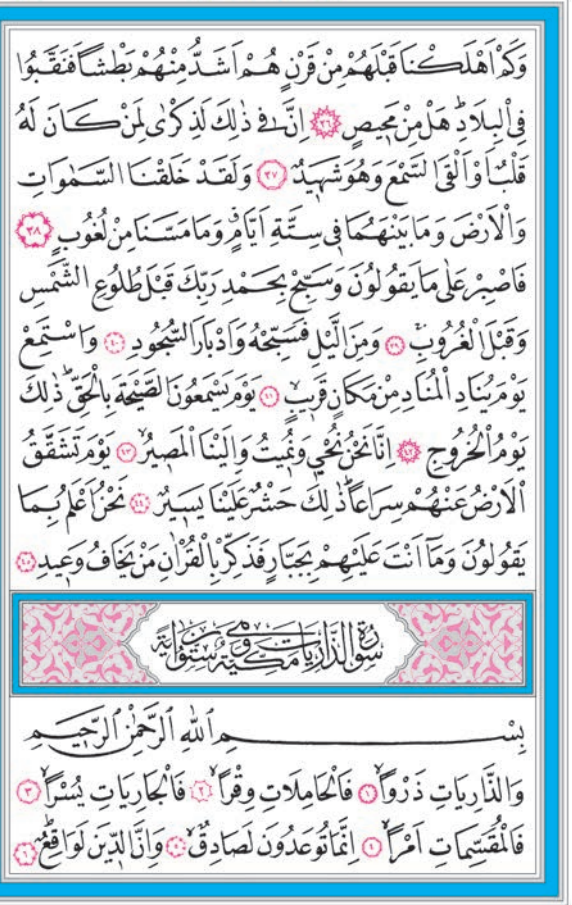 وَكَمْ اَهْلَكْنَا قَبْلَهُمْ مِنْ قَرْنٍ هُمْ اَشَدُّ مِنْهُمْ بَطْشاً فَنَقَّبُوا
فِي الْبِلَادِۜ هَلْ مِنْ مَح۪يصٍ ﴿٣٦﴾ اِنَّ ف۪ي ذٰلِكَ لَذِكْرٰى لِمَنْ كَانَ لَهُ
قَلْبٌ اَوْ اَلْقَى السَّمْعَ وَهُوَ شَه۪يدٌ ﴿٣٧﴾ وَلَقَدْ خَلَقْنَا السَّمٰوَاتِ
وَالْاَرْضَ وَمَا بَيْنَهُمَا ف۪ي سِتَّةِ اَيَّامٍۗ وَمَا مَسَّنَا مِنْ لُغُوبٍ ﴿٣٨﴾
فَاصْبِرْ عَلٰى مَا يَقُولُونَ وَسَبِّحْ بِحَمْدِ رَبِّكَ قَبْلَ طُلُوعِ الشَّمْسِ
وَقَبْلَ الْغُرُوبِۚ ﴿٣٩﴾ وَمِنَ الَّيْلِ فَسَبِّحْهُ وَاَدْبَارَ السُّجُودِ ﴿٤٠﴾ وَاسْتَمِعْ
يَوْمَ يُنَادِ الْمُنَادِ مِنْ مَكَانٍ قَر۪يبٍۙ ﴿٤١﴾ يَوْمَ يَسْمَعُونَ الصَّيْحَةَ بِالْحَقِّۜ ذٰلِكَ
يَوْمُ الْخُرُوجِ ﴿٤٢﴾ اِنَّا نَحْنُ نُحْي۪ وَنُم۪يتُ وَاِلَيْنَا الْمَص۪يرُۙ ﴿٤٣﴾ يَوْمَ تَشَقَّقُ
الْاَرْضُ عَنْهُمْ سِرَاعاًۜ ذٰلِكَ حَشْرٌ عَلَيْنَا يَس۪يرٌ ﴿٤٤﴾ نَحْنُ اَعْلَمُ بِمَا
يَقُولُونَ وَمَٓا اَنْتَ عَلَيْهِمْ بِجَبَّارٍ فَذَكِّرْ بِالْقُرْاٰنِ مَنْ يَخَافُ وَع۪يدِ ﴿٤٥﴾
سُورَةُ الذَّارِيَاتِ مَكِّيَّةٌ وَهِيَ سِتُّونَ اٰيَةً
بِسْمِ اللّٰهِ الرَّحْمٰنِ الرَّح۪يمِ
وَالذَّارِيَاتِ ذَرْواًۙ ﴿١﴾ فَالْحَامِلَاتِ وِقْراًۙ ﴿٢﴾ فَالْجَارِيَاتِ يُسْراًۙ ﴿٣﴾
فَالْمُقَسِّمَاتِ اَمْراًۙ ﴿٤﴾ اِنَّمَا تُوعَدُونَ لَصَادِقٌۙ ﴿٥﴾ وَاِنَّ الدّ۪ينَ لَوَاقِعٌۜ ﴿٦﴾